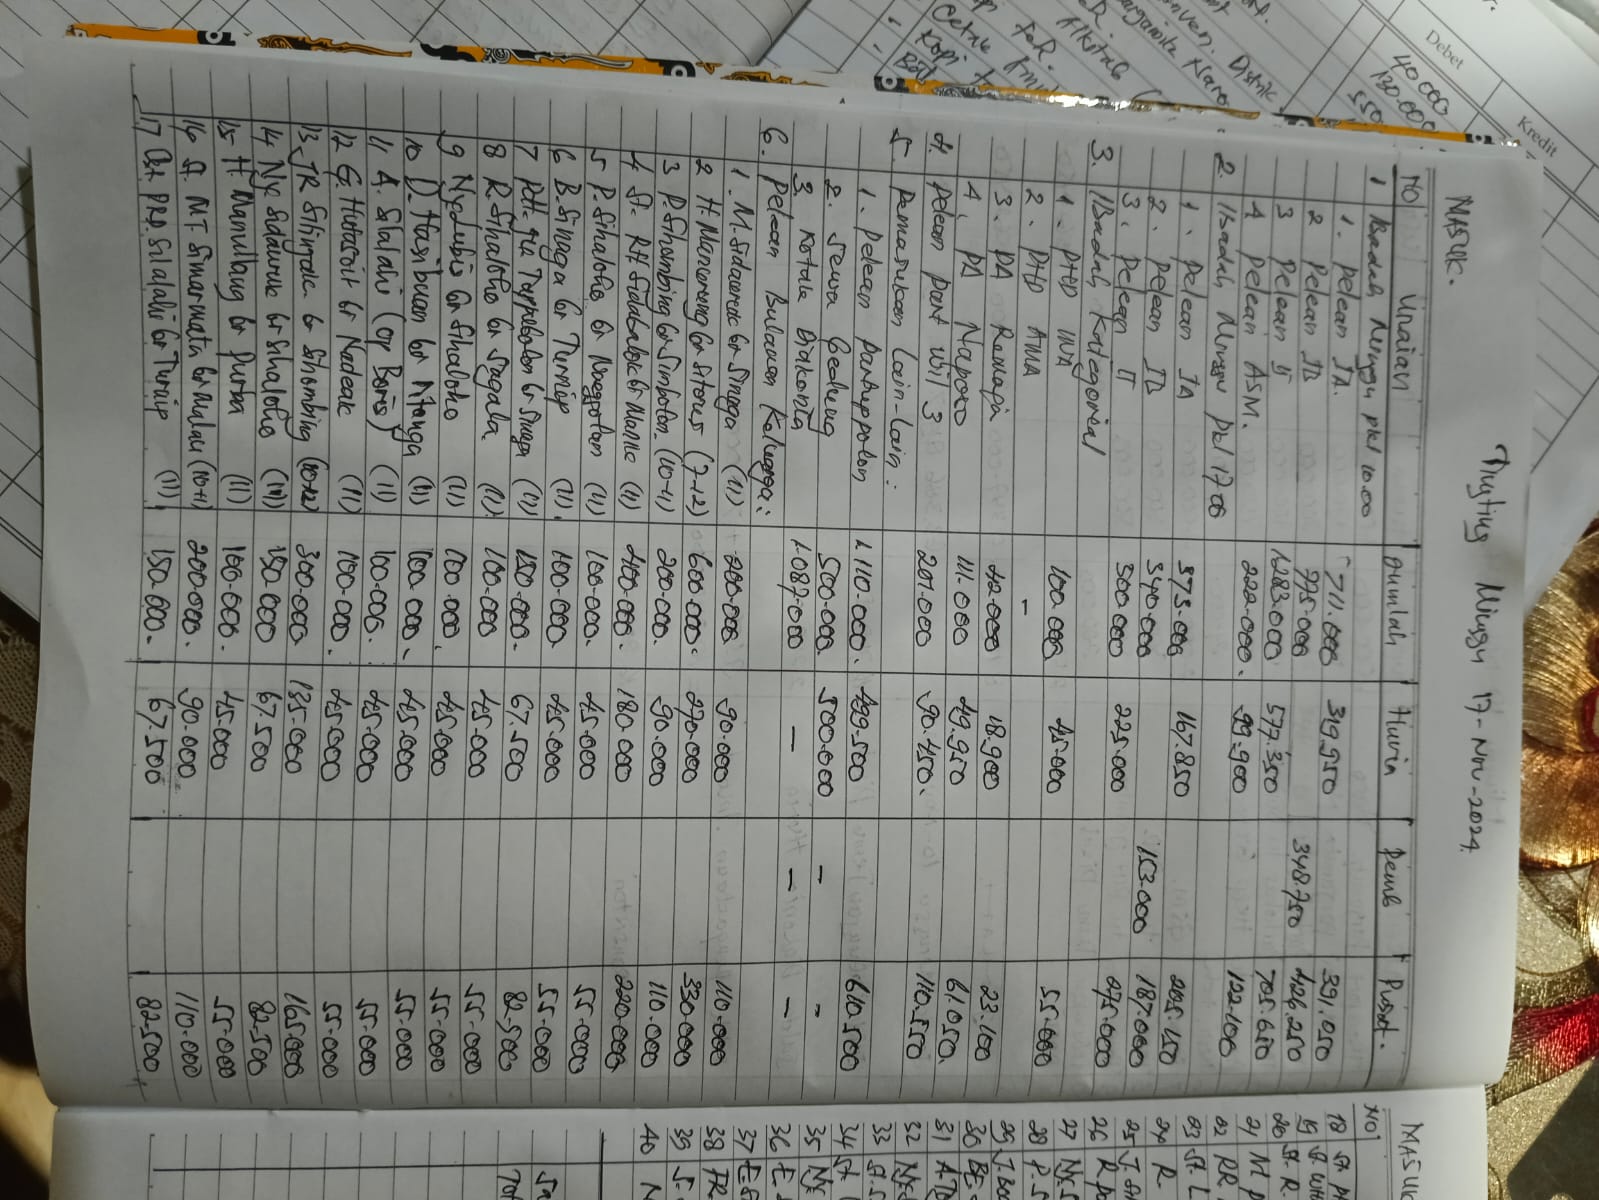 Kredit
Debet
40 000
130.000
550
Tingting Minggu 17-Nov-2024
MASUK.
NO Uraian Jumlah Huria Pemb Pusat.
1 Ibadah Minggu pkl 10.00
1. Pelean IA. 711.000 319.950 391.050
2 Pelean IB 775.000 348.750 426.250
3 Pelean II 1.283.000 577.350 705.650
4 Pelean ASM. 222.000. 99.900 122.100
2. Ibadah Minggu pkl 17 00
1. Pelean IA 373.000 167.850 205.150
2. Pelean IB 340.000 153.000 187.000
3. Pelean II 500.000 225.000 275.000
3. Ibadah Kategorial
1. PHD INA 100.000 45.000 55.000
2. PHD AMA -
3. PA Remaja 42.000 18.900 23.100
4. PA Naposo 111.000 49.950 61.050
4. Pelean part Wil 3 201.000 90.450. 110.550
5. Pemasukan Lain-Lain:
1. Pelean Partuppolon 1.110.000. 499.500 610.500
2. Sewa Gedung 500.000. 500.000 - -
3. Kotak Diakonia 1.087.000 - - -
6. Pelean Bulanan Keluarga:
1. M. Sidauruk br Sinaga (11) 200.000 90.000 110.000
2 H. br Sitorus (7-12) 600.000. 270.000 330.000
3 P. Sihombing br Simbolon. (10-11) 200.000. 90.000 110.000
4 St. RH. Sidabalok br (11) 400.000. 180.000 220.000
5 P. Sihaloho br (11) 100.000. 45.000 55.000
6 B. Sinaga br Turnip (11) 100.000 45.000 55.000
7 br Sinaga (11) 150.000. 67.500 82.500
8 R. Sihaloho br Sagala. (11) 100.000 45.000 55.000
9 Ny. Lubis br Sihaloho (11) 100.000. 45.000 55.000
10 D. Hasibuan br (11) 100.000. 45.000 55.000
11 A. Silalahi (op Boris) (11) 100.000. 45.000 55.000
12 G. Hutasoit br Nadeak (11) 100.000. 45.000 55.000
13. JR br Sihombing (10-12) 300.000 135.000 165.000
14 Ny. Sidauruk br Sihaloho (11) 150.000 67.500 82.500
15 H. Manullang br Purba (11) 100.000. 45.000 55.000
16 St. MT. Simarmata br Malau (10+11) 200.000. 90.000 110.000
17 PRP. Silalahi br Turnip (11) 150.000. 67.500 82.500
MASUK
NO
18 St.
19 St.
20 St. R.
21 M
22 RR
23 St. L
24 R.
25 J.
26 R
27 Ny.
28 P. S
29 J.
30 BE
31 A.
32 Ny.
33 St. S
34 St.
35 Ny
36 E
37 E
38 FR.
39 S.
40 N